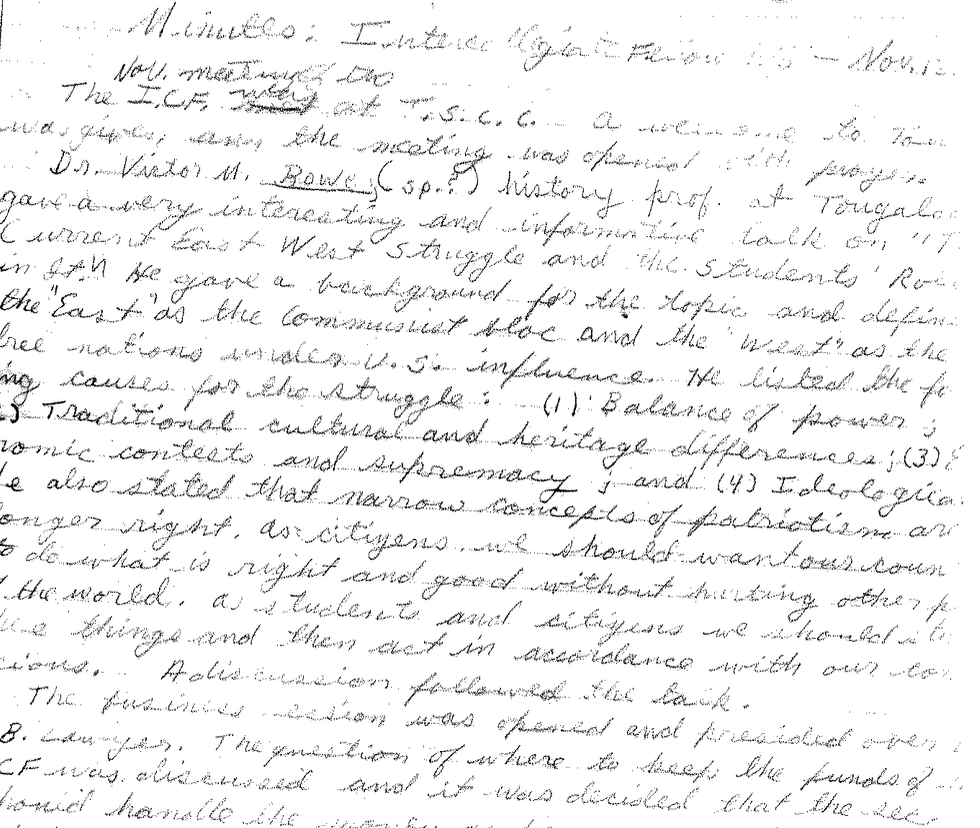 Minutes: Intercollegiate Fellowship — Nov. 12
Nov. meeting
The I.C.F. was at T.S.C.C. — A welcome to
was given, and the meeting was opened with prayer.
Dr. Victor M. Rowe, (sp.?) history prof. at Tougaloo
gave a very interesting and informative talk on "T
Current East West Struggle and the Students' Role
in It." He gave a background for the topic and defin
the "East" as the Communist bloc and the "West" as the
free nations under U.S. influence. He listed the fo
ng causes for the struggle: (1) Balance of power;
Traditional cultural and heritage differences; (3) E
nomic contests and supremacy; and (4) Ideologica
He also stated that narrow concepts of patriotism are
longer right. As citizens we should want our coun
to do what is right and good without hurting other p
the world. As students and citizens we should
these things and then act in accordance with our con
ions. A discussion followed the talk.
The business session was opened and presided over
B. Lawyer. The question of where to keep the funds of
CF was discussed and it was decided that the sec.
should handle the money